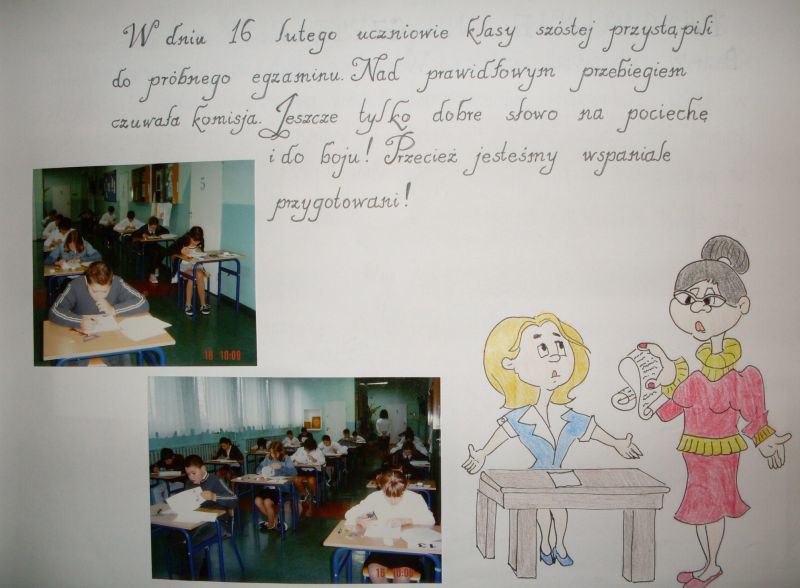 W dniu 16 lutego uczniowie klasy szóstej przystąpili
do próbnego egzaminu. Nad prawidłowym przebiegiem
czuwała komisja. Jeszcze tylko dobre słowo na pociechę
i do boju! Przecież jesteśmy wspaniale
przygotowani!
5
16 10:09
13
16 10:09